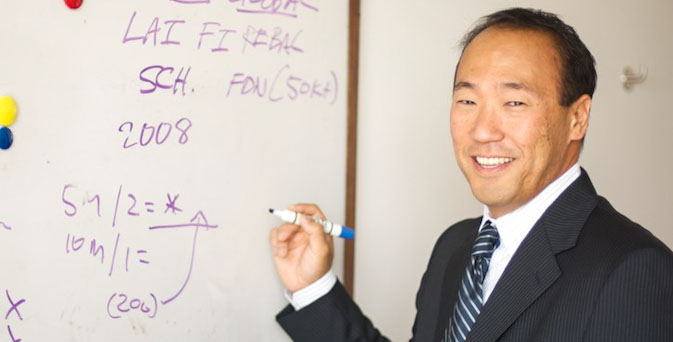 LAI FI REBAL
SCH. FDN (50K+)
2008
5M/2=*
10M/1=
(200)
X